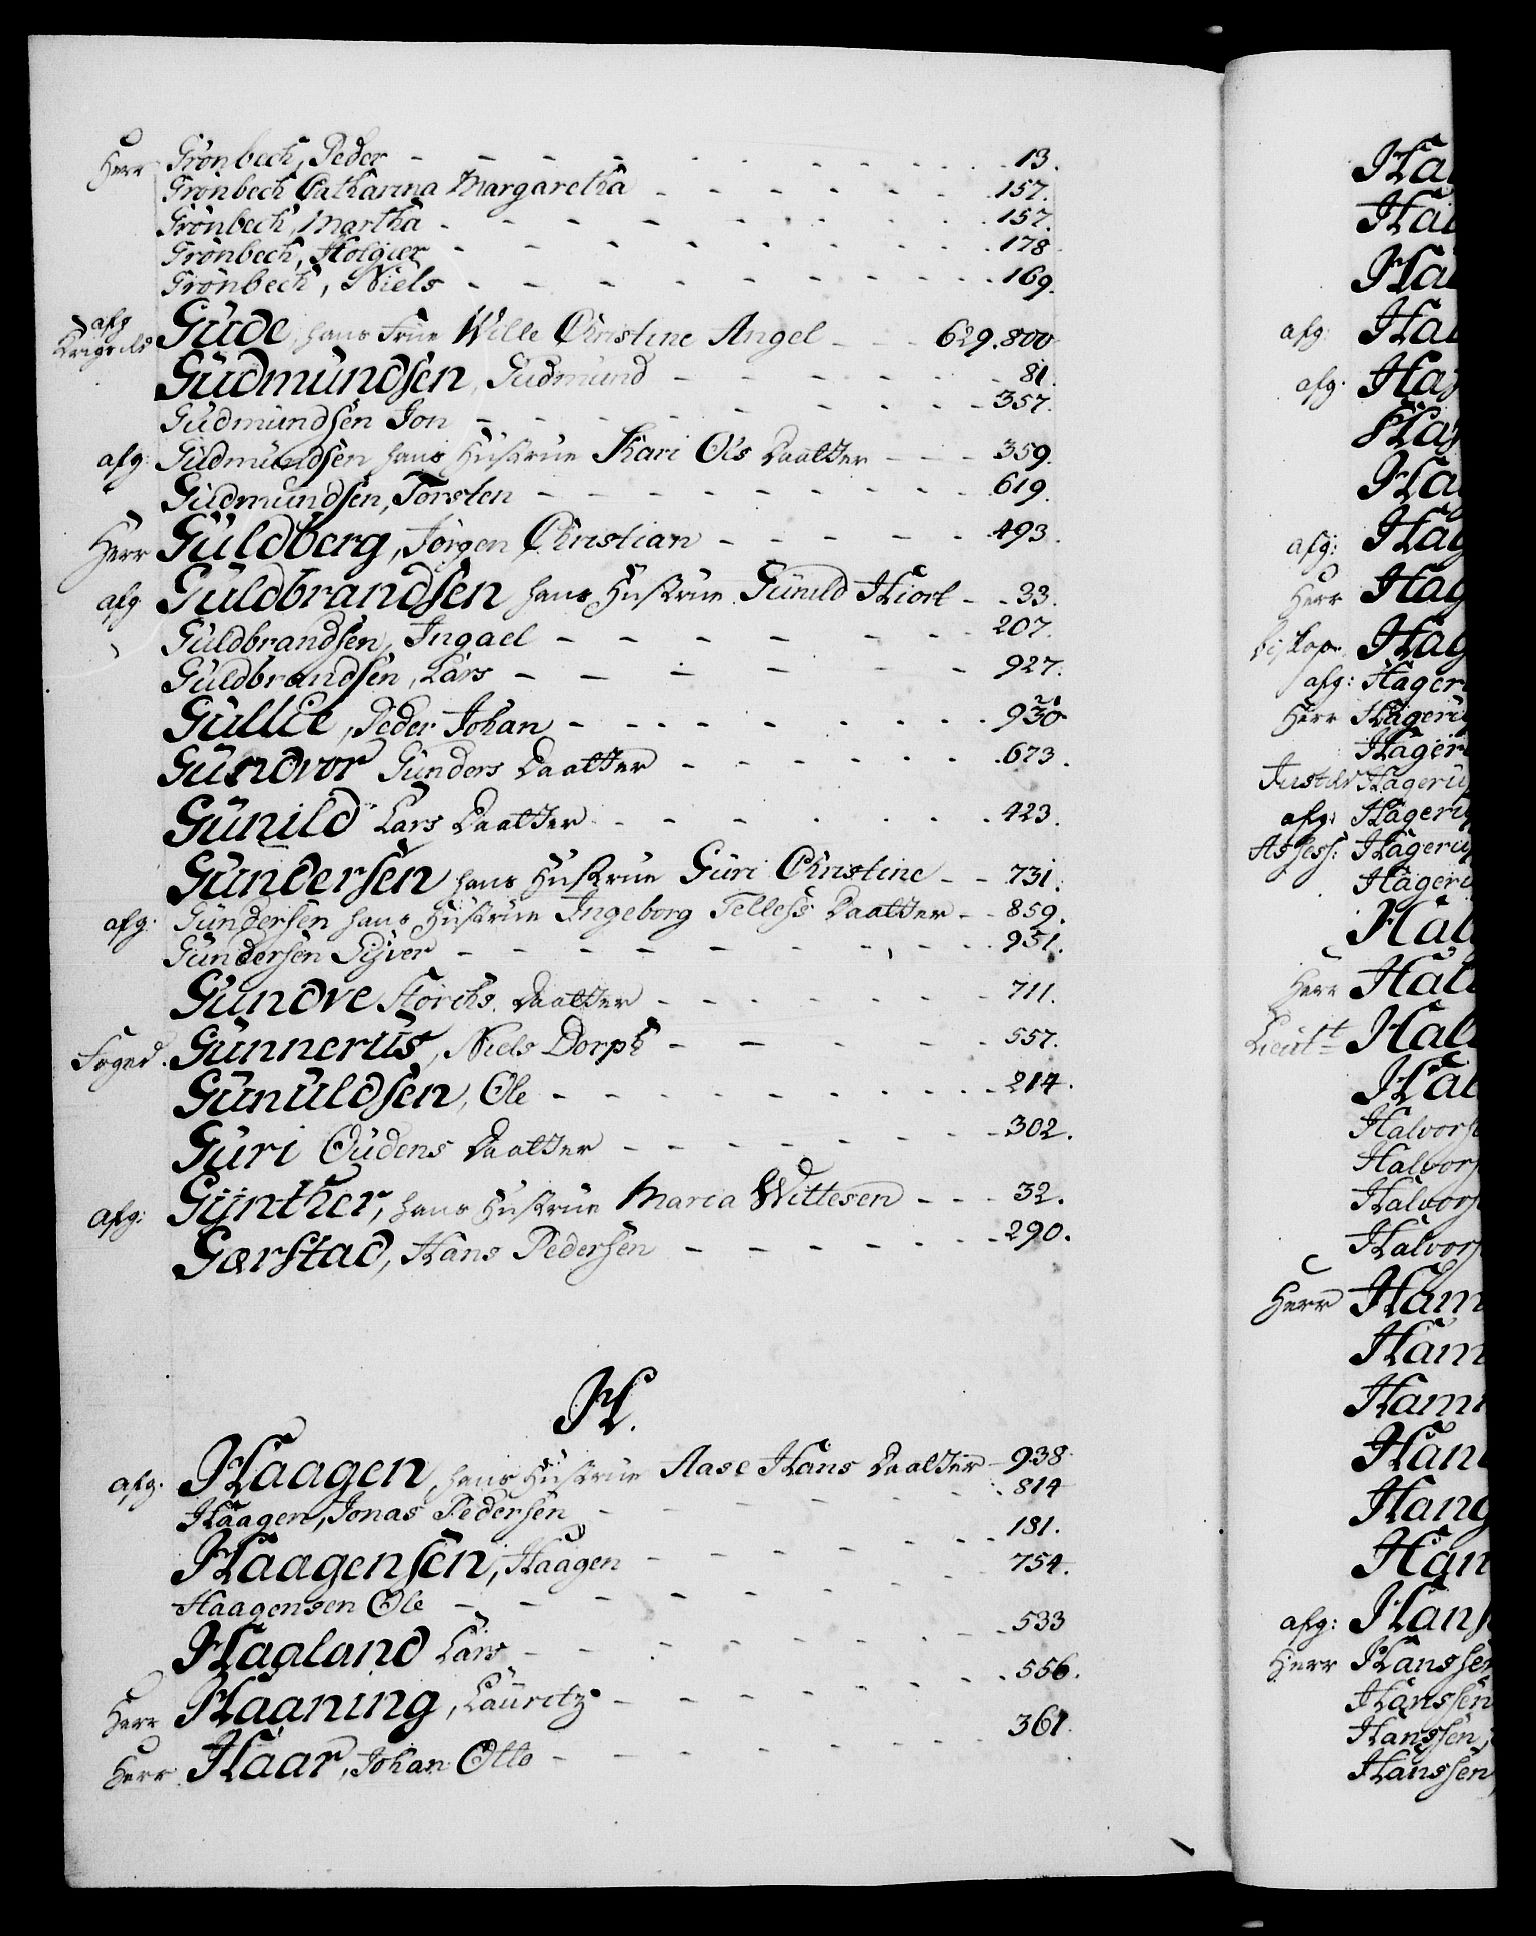 Herr Grönbech, Peder - - - - - - - - - 13.
Grönbech Catharina Margaretha - - - - - - 157.
Grönbech, Martha - - - - - - - - - 157.
Grönbech, Holgier - - - - - - - - - 178
Grönbech, Niels - - - - - - - - - 169.
afg Krigsrld Güde, hans Frue Wille Christine Angel - - - 629.800
Güdmündsen, Güdmünd - - - - - - 81.
Güdmündsen Jon - - - - - - - - 357.
afg: Güdmündsen hans Hustrue Kari Ols Daatter - - - 359.
Güdmündsen, Torsten - - - - - - - - 619.
Herr Güldberg, Jörgen Christian - - - - - 493.
afg Güldbrandsen hans Hustrue Günild Hiort - - 33.
Güldbrandsen, Ingael - - - - - - - 207.
Güldbrandsen, Lars - - - - - - 927.
Güllie, Peder Johan - - - - - - - - 930
Gündvor Günders Daatter - - - - - - 673.
Günild Lars Daatter - - - - - - - 423.
Gündersen hans Hustrue Güri Christine - - 731.
afg. Gündersen hans Hustrue Ingeborg Telless Daatter - - 859.
Gündersen Sijver - - - - - - - - 951.
Gündve Storchs Daatter - - - - - - 711.
Foged. Günnerüs, Niels Dorph - - - - - 557.
Günüldsen, Ole - - - - - - - - 214.
Güri Oüdens Daatter - - - - - - - 302.
afg: Günther, hans Hustrue Maria Wittesen - - - 32.
Gærstad, Hans Pedersen - - - - - - 290.
H.
afg. Haagen, hans Hustrue Aase Hans Daatter - 938
Haagen, Jonas Pedersen - - - - - - - 814
Haagensen, Haagen - - - - - - - 181.
Haagensen Ole - - - - - - - - 754.
Haaland Lars - - - - - - - 533
Herr Haaning, Lauritz - - - - - - - 556.
Herr Haar, Johan Otto - - - - - - - - 361.
afg.
afg.
afg:
Herr
Biskop
afg: Hager
Herr Hagerü
Hager
Hagerü
afg: Hagerü
Assess: Hagerü
Hagerü
Herr
Lieut
Halvors
Halvors
Halvors
Halvors
Herr Ham
Ham
Ham
Han
Hang
Han
afg: Hans
Herr Hanssen
Hanssen
Hanssen,
Hanssen,